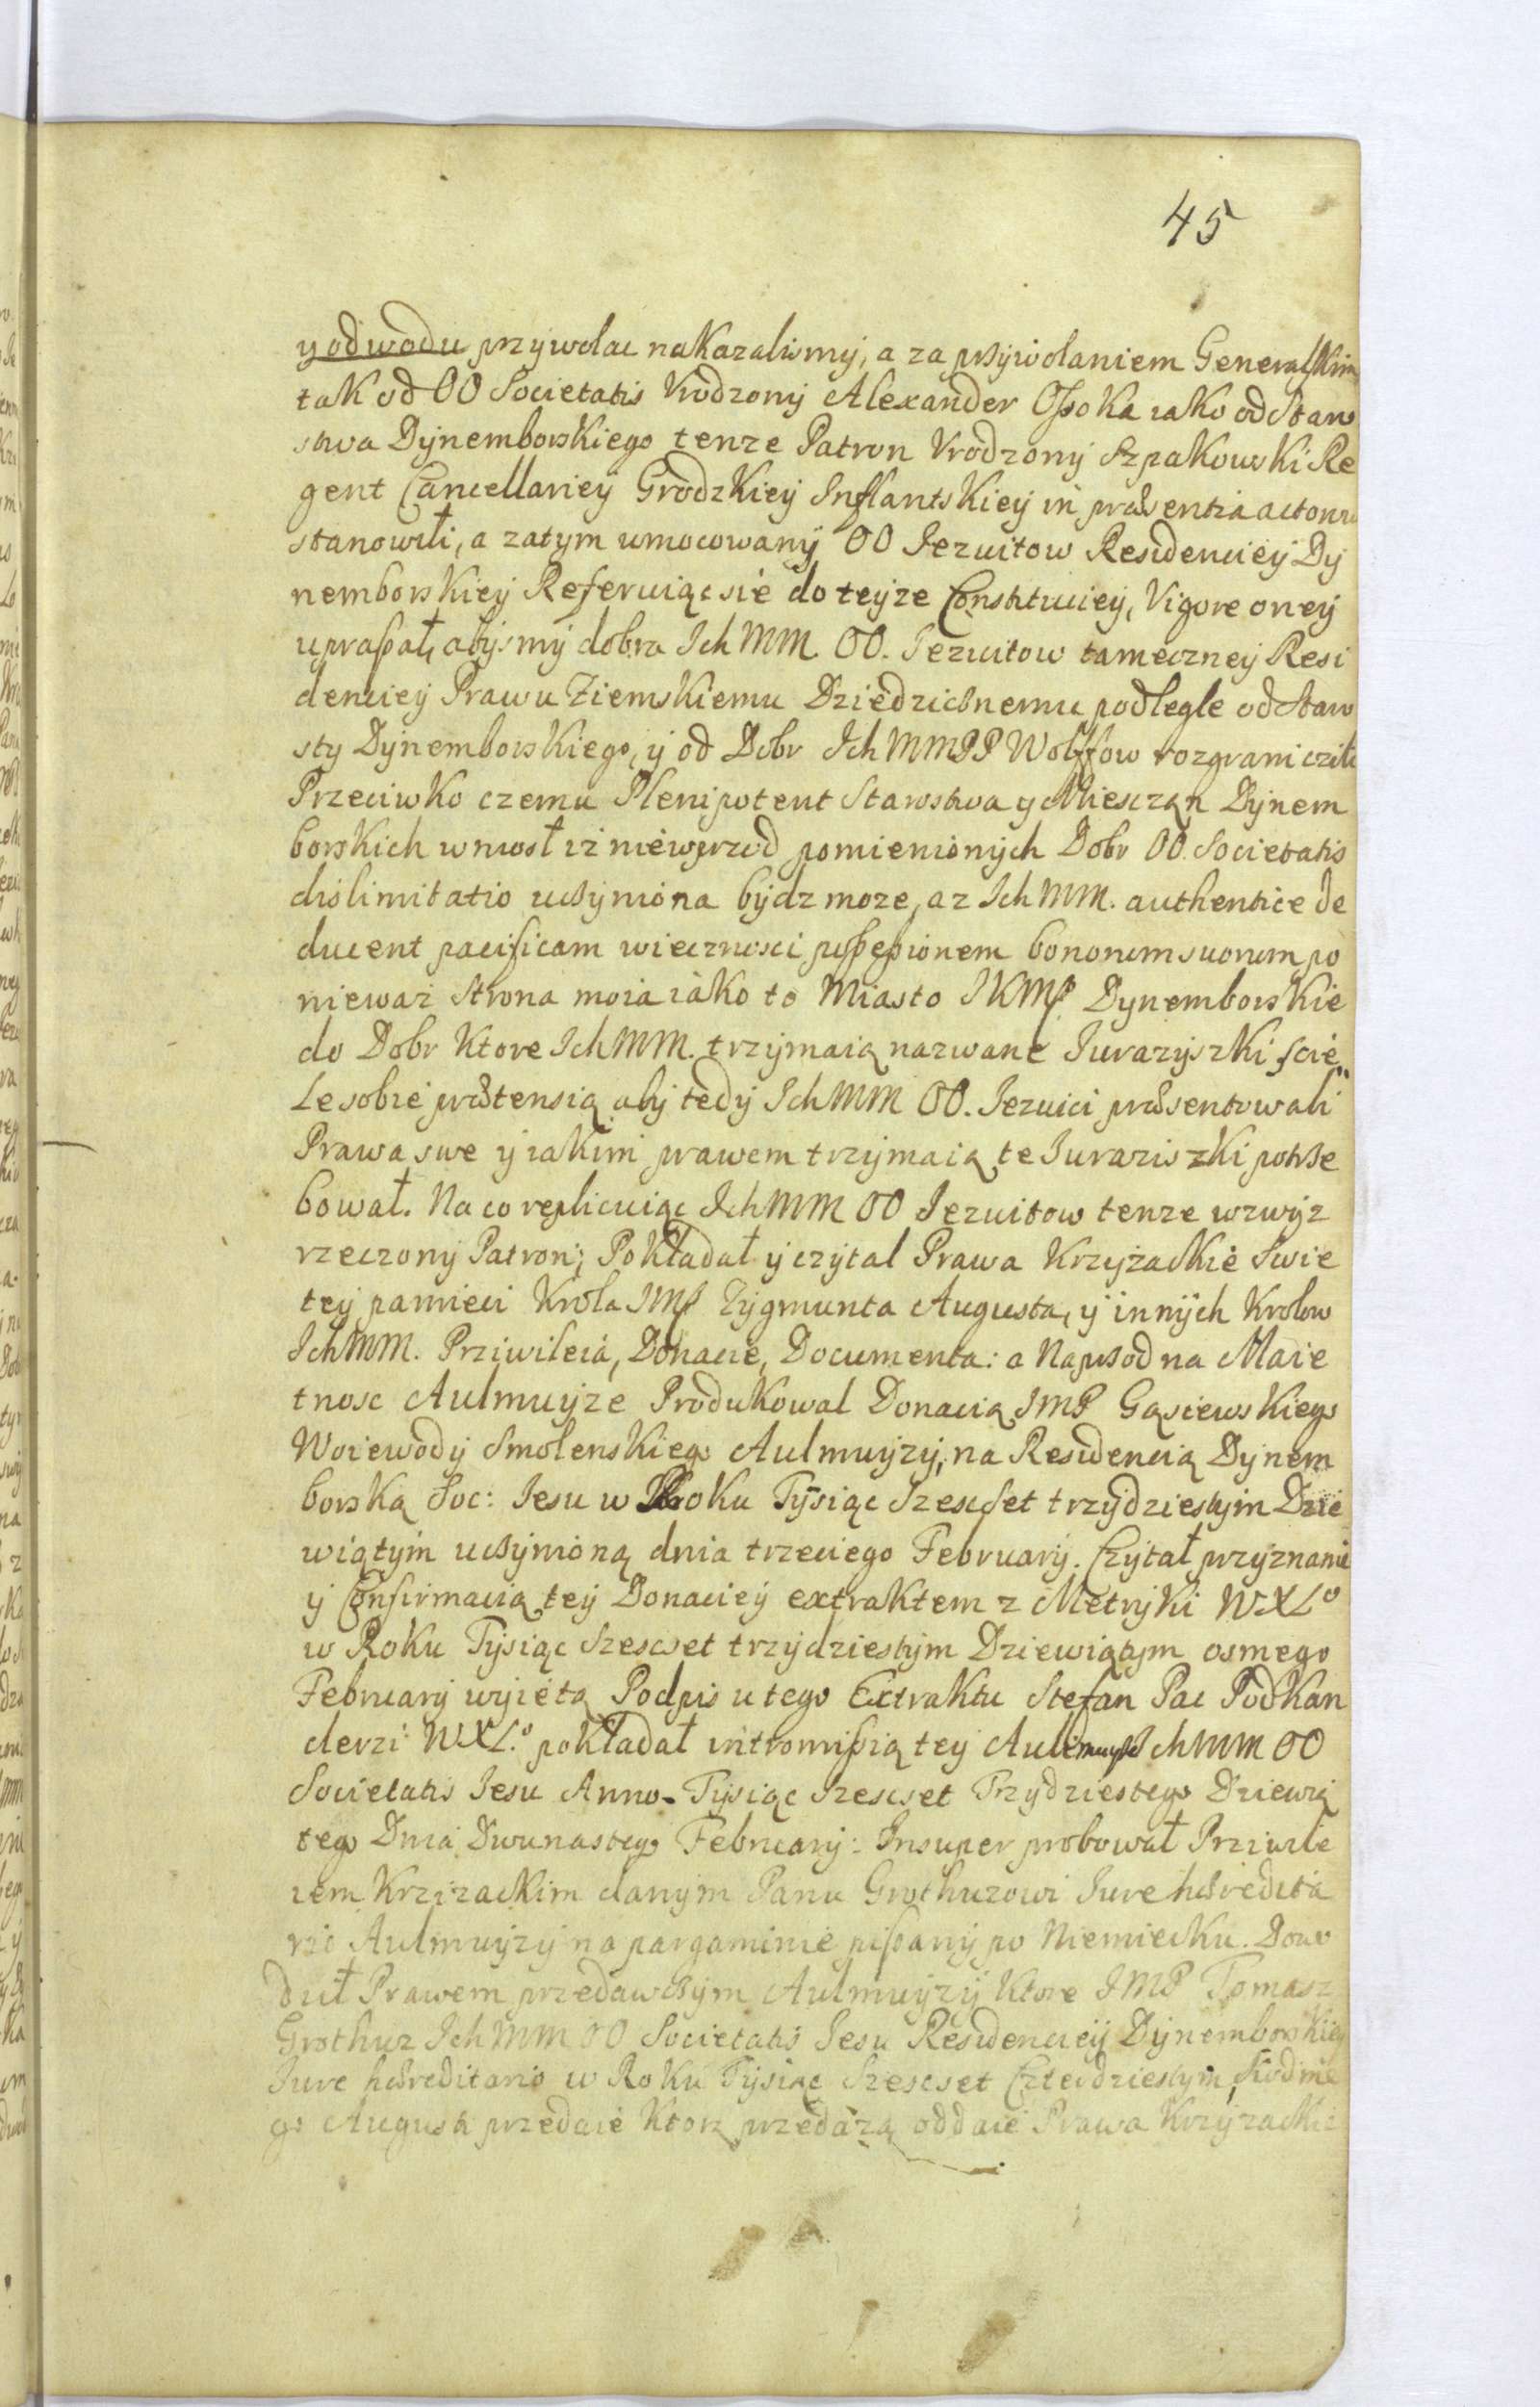 45
y odwodu przywolac nakazalismy, a za przywolaniem Generalskim
tak od OO Societatis Vrodzony Alexander Ossoka iako od Staro
stwa Dynemborskiego tenze Patron Vrodzony Szpakowski Re
gent Cancellariey Grodzkiey Inflantskiey in præsentia actorum
stanowili, a zatym umocowany OO Jezuitow Residenciey Dy
nemborskiey Referuiąc sie do teyze Constituciey, Vigore oney
upraszał, abysmy dobra Ich MM. OO. Jezuitow tameczney Resi
denciey Prawu Ziemskiemu Dziedzicznemu podlegle od Staro
sty Dynemborskiego, y od Dobr Ich MM PP Wolffow rozgraniczili
Przeciwko czemu Plenipotent Starostwa y Miesczan Dynem
borskich wniosł iz niewprzod pomienionych Dobr OO. Societatis
dislimitatio uczyniona bydz moze, az Ich MM. authentice de
ducent pacificam wiecznosci possessionem bonorum suorum po
niewaz Strona moia iako to Miasto JKMs Dynemborskie
do Dobr Ktore Ich MM. trzymaią nazwane Iurazyszki scie
le sobie prætensią aby tedy Ich MM OO. Jezuici præsentowali
Prawa swe y iakim prawem trzymaią te Iuraziszki potrze
bował. Na co replicuiąc Ich MM OO Jezuitow tenze wzwyz
rzeczony Patron; Pokładał y czytal Prawa Krzyżackie Swie
tey pamieci Krola JMs Zygmunta Augusta, y innych Krolow
Ich MM. Prziwileia, Donacie, Documenta: a Naprzod na Maie
tnosc Aulmuyze Produkowal Donacią JMP Gąsiewskiego
Woiewody Smolenskiego Aulmuyzy, na Residencią Dynem
borską Soc: Iesu w Roku Tysiąc Szescset trzydziestym Dzie
wiątym uczynioną dnia trzeciego February. Czytał przyznanie
y Confirmacią tey Donaciey extraktem z Metryki WXLo
w Roku Tysiąc Szescset trzydziestym Dziewiątym osmego
February wyietą Podpis u tego Extraktu Stefan Pac Podkan
clerzi WXL.o pokładał intromissią tey Aulmuyze Ich MM OO
Societatis Iesu Anno Tysiąc Szescset Trzydziestego Dziewią
tego Dnia Dwunastego February: Insuper probował Przwile
iem Krzizackim danym Panu Grothuzowi Iure hæredita
rio Aulmuyzy na pargaminie pissany po Niemiecku. Dowo
dził Prawem przedawczym Aulmuyzy Ktore JMP Tomasz
Grothuz Ich MM OO Societatis Iesu Residenciey Dynemborskiey
Iure hæreditario w Roku Tysiąc Szescset Czterdziestym, Siodme
go Augusta przedaie Ktorą przedażą oddaie Prawa Krzyzackie